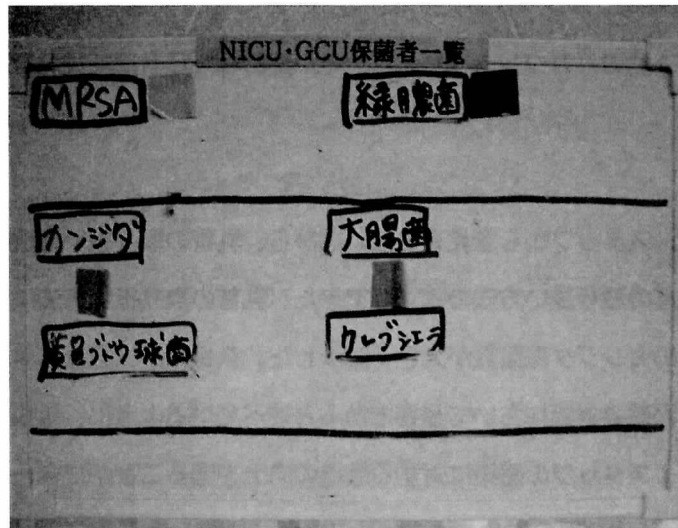 NICU・GCU保菌者一覧
MRSA 緑膿菌
カンジダ 大腸菌
黄色ブドウ球菌 クレブシエラ